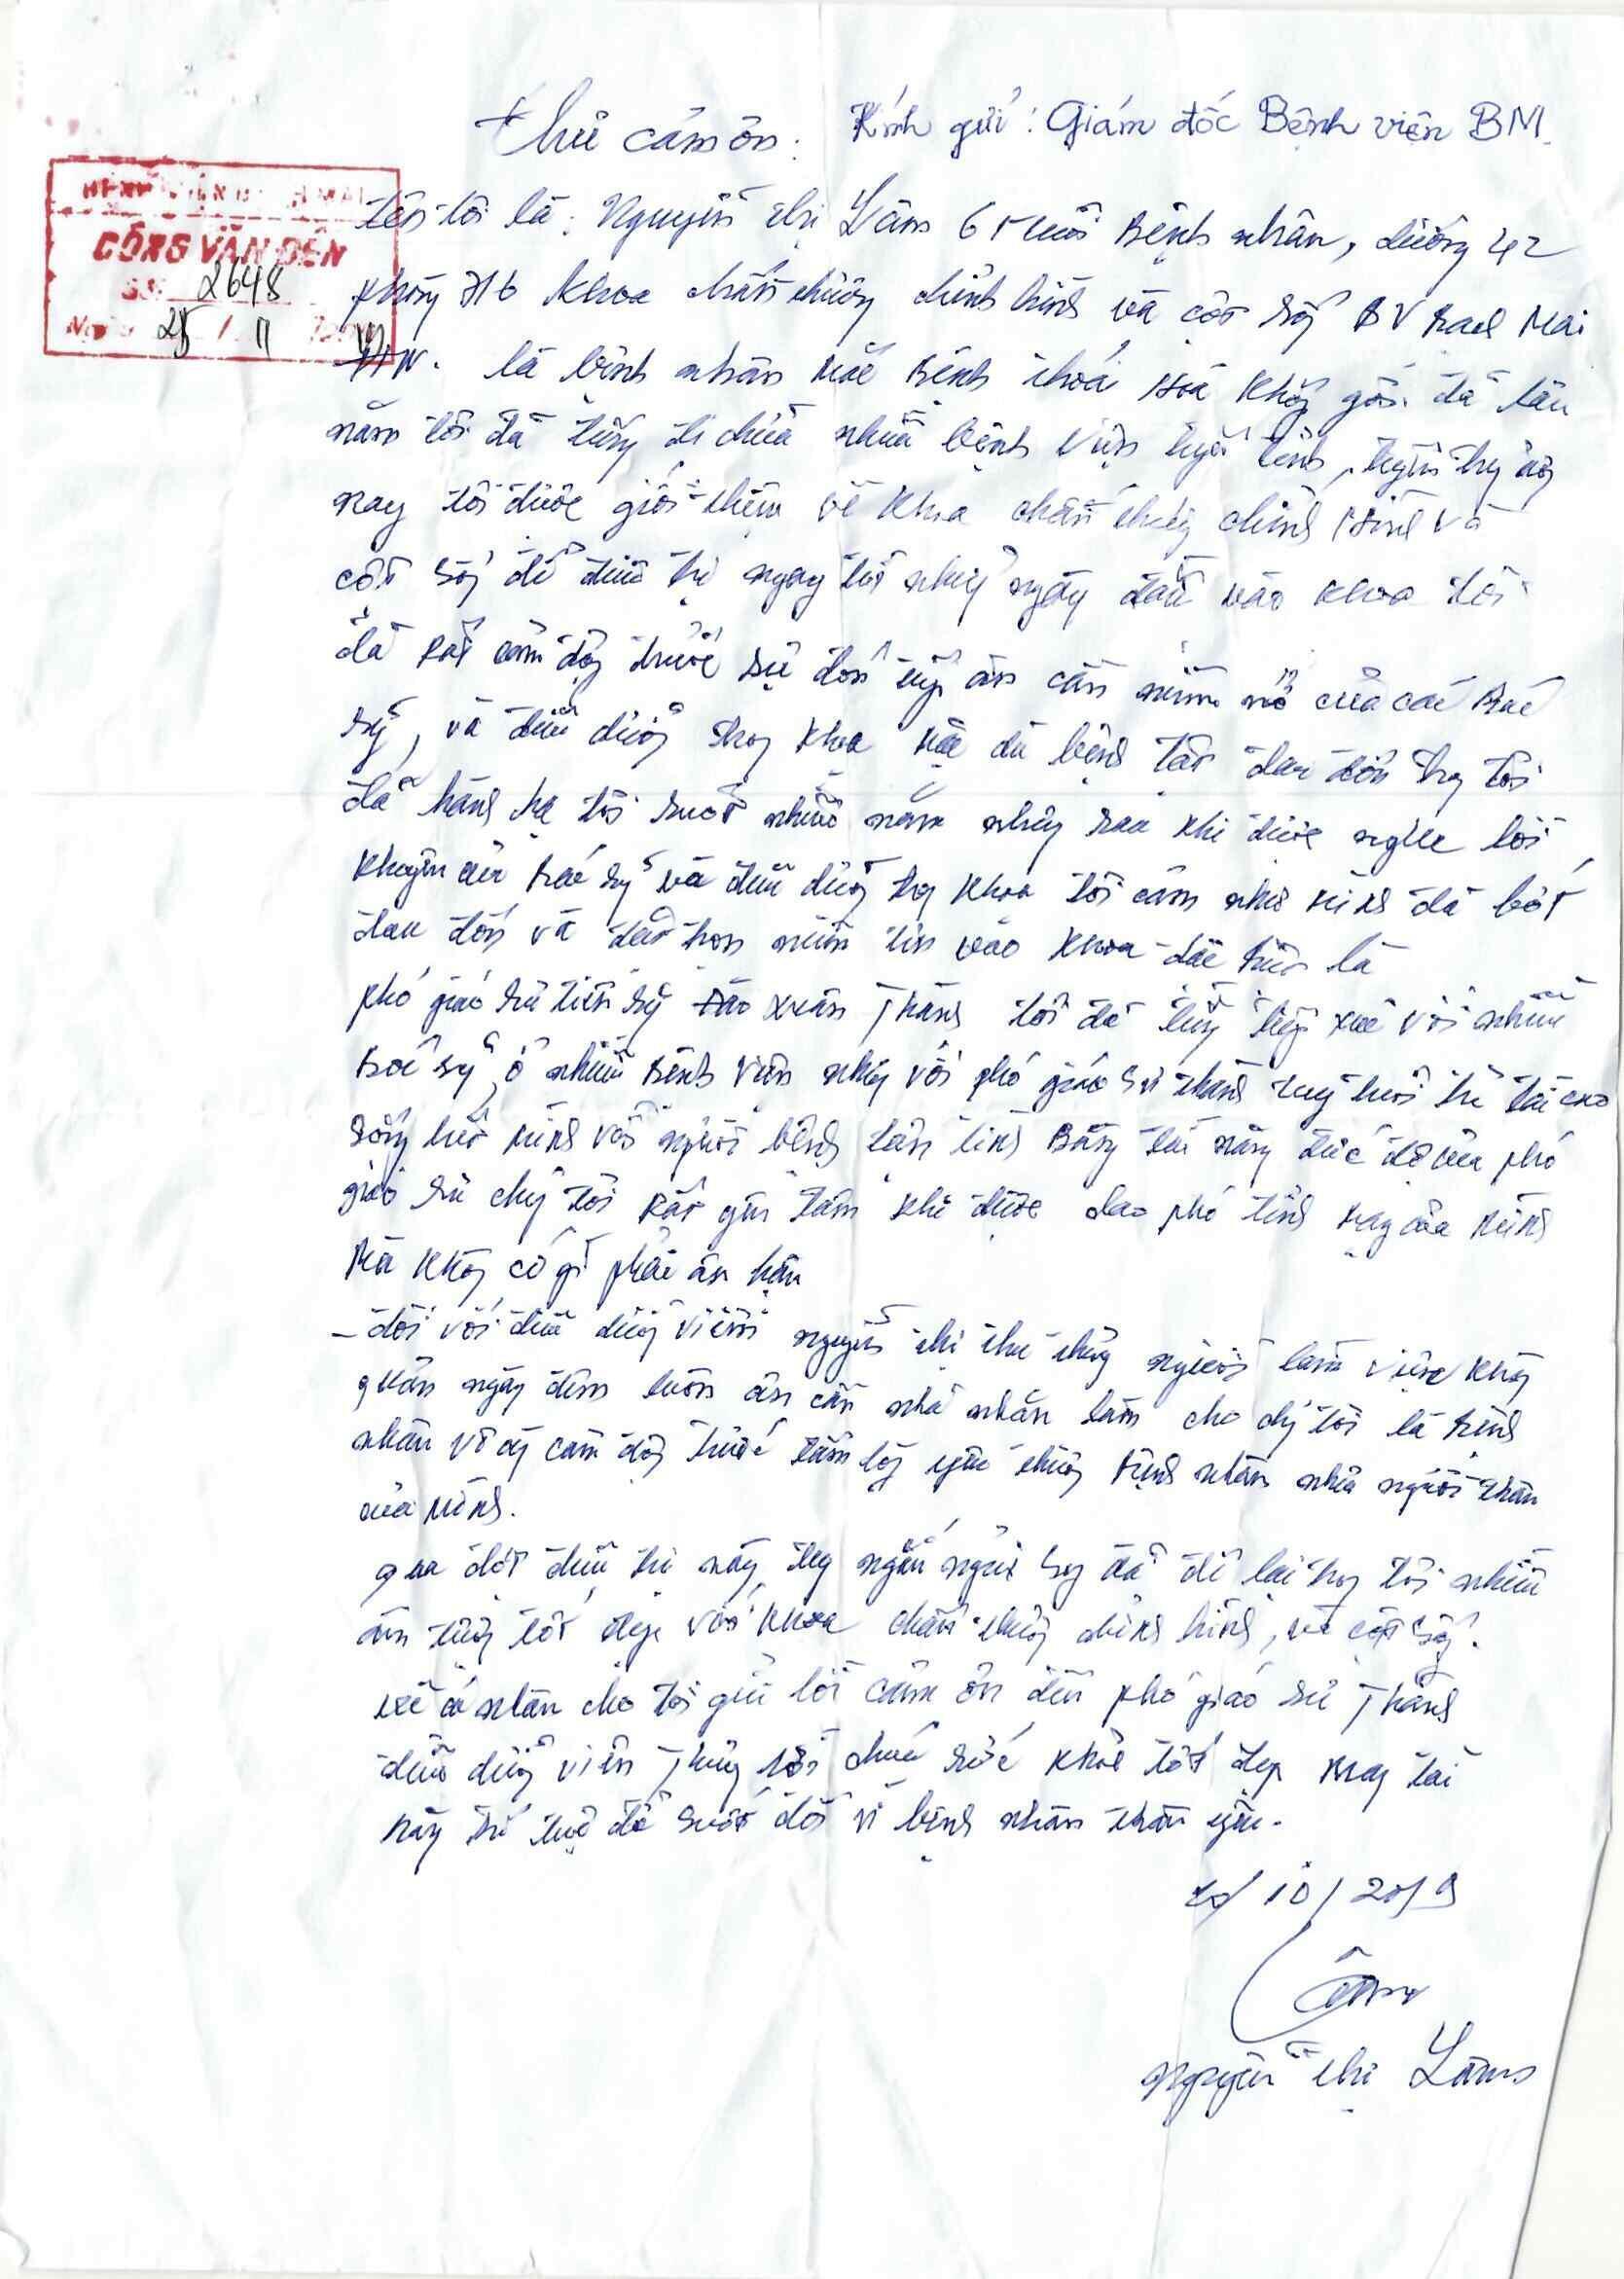 Thư cám ơn: Kính gửi: Giám đốc Bệnh viện BM.
BỆNH VIỆN BẠCH MAI
CÔNG VĂN ĐẾN
Số: 2648
Ngày 25 / 11
tên tôi là: Nguyễn thị Lâm 65 tuổi Bệnh nhân, giường 42
phòng 716 khoa chấn thương chỉnh hình và cột sống BV Bạch Mai
HN. là bệnh nhân mắc Bệnh thoái hoá khớp gối. đã lâu
năm tôi đã từng đi chữa nhiều bệnh viện tuyến tỉnh, tuyến trung ương
nay tôi được giới thiệu về khoa chấn thương chỉnh hình và
cột sống để điều trị ngay từ những ngày đầu vào khoa tôi
đã rất cảm động trước sự đón tiếp ân cần niềm nở của các Bác
sỹ, và điều dưỡng trong khoa mặc dù bệnh tật đau đớn trong tôi
đã hành hạ tôi suốt nhiều năm nhưng sau khi được nghe lời
khuyên của Bác sỹ và điều dưỡng trong khoa tôi cảm như mình đã bớt
đau đớn và đặt trọn niềm tin vào khoa đặc biệt là
phó giáo sư tiến sỹ Đào Xuân Thành tôi đã từng tiếp xúc với nhiều
Bác sỹ ở nhiều Bệnh viện nhưng với phó giáo sư thành tuy tuổi trẻ tài cao
sống hết mình với người bệnh tận tình Bằng tài năng đức độ của phó
giáo sư chúng tôi rất yên tâm khi được giao phó tính mạng của mình
Mà không có gì phải ân hận
- đối với điều dưỡng viên nguyễn thị thu thủy người làm việc không
quản ngày đêm luôn ân cần nhỏ nhẹ làm cho chúng tôi là bệnh
nhân vô cùng cảm động trước tấm lòng yêu thương bệnh nhân như người thân
của mình.
qua đợt điều trị này tuy ngắn ngủi song đã để lại trong tôi nhiều
ấn tượng tốt đẹp với khoa chấn thương chỉnh hình, và cột sống.
về cá nhân cho tôi gửi lời cảm ơn đến phó giáo sư Thành
điều dưỡng viên Thủy lời chúc sức khoẻ tốt đẹp mang tài
năng trí tuệ để suốt đời vì bệnh nhân thân yêu.
/ 10 / 2019
nguyễn thị Lâm